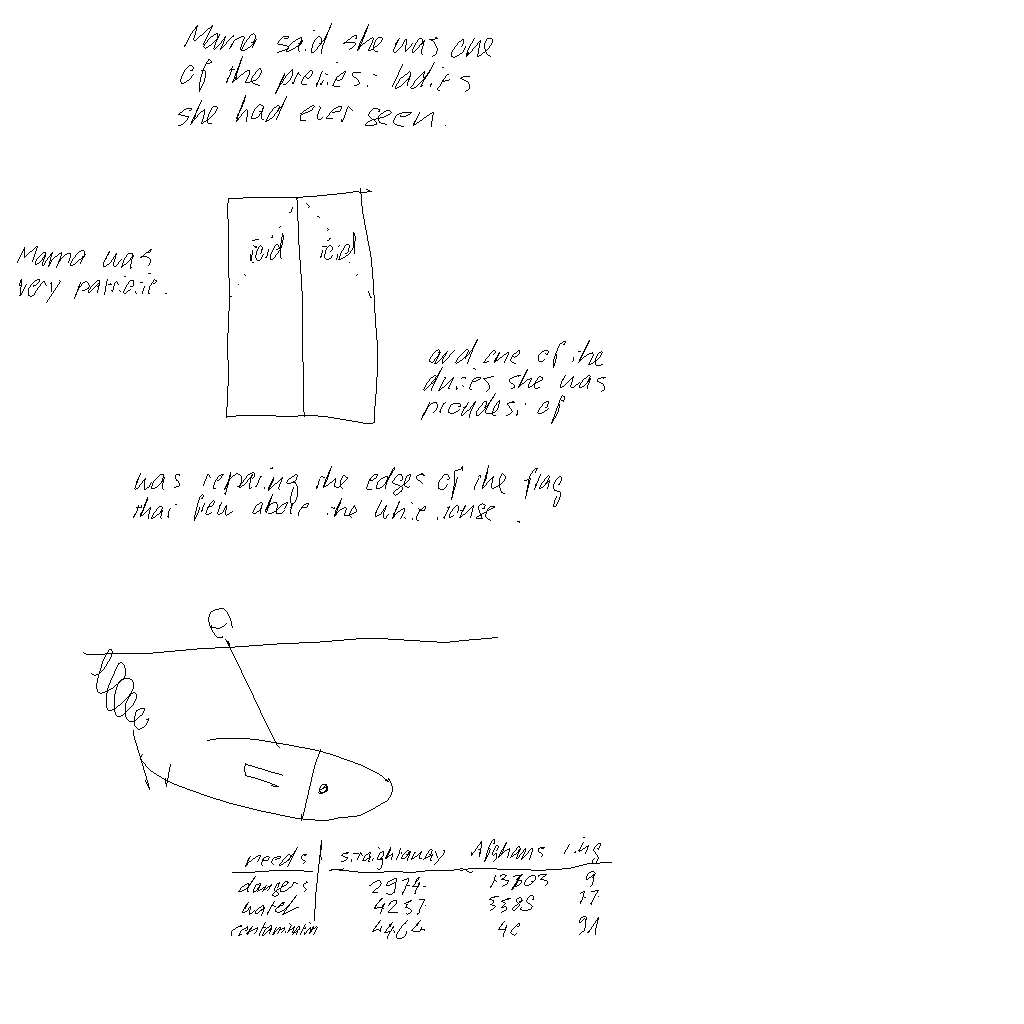 Mama said she was one
of the prettiest ladies
she had ever seen.
fold fold
Mama was
very patriotic.
and one of the
duties she was
proudest of
was repairing the edges of the flag
that flew above the White House.
needs straightaway Afghans
dangers 2974 13703 9
water 4237 5585 17
contamination 4464 91